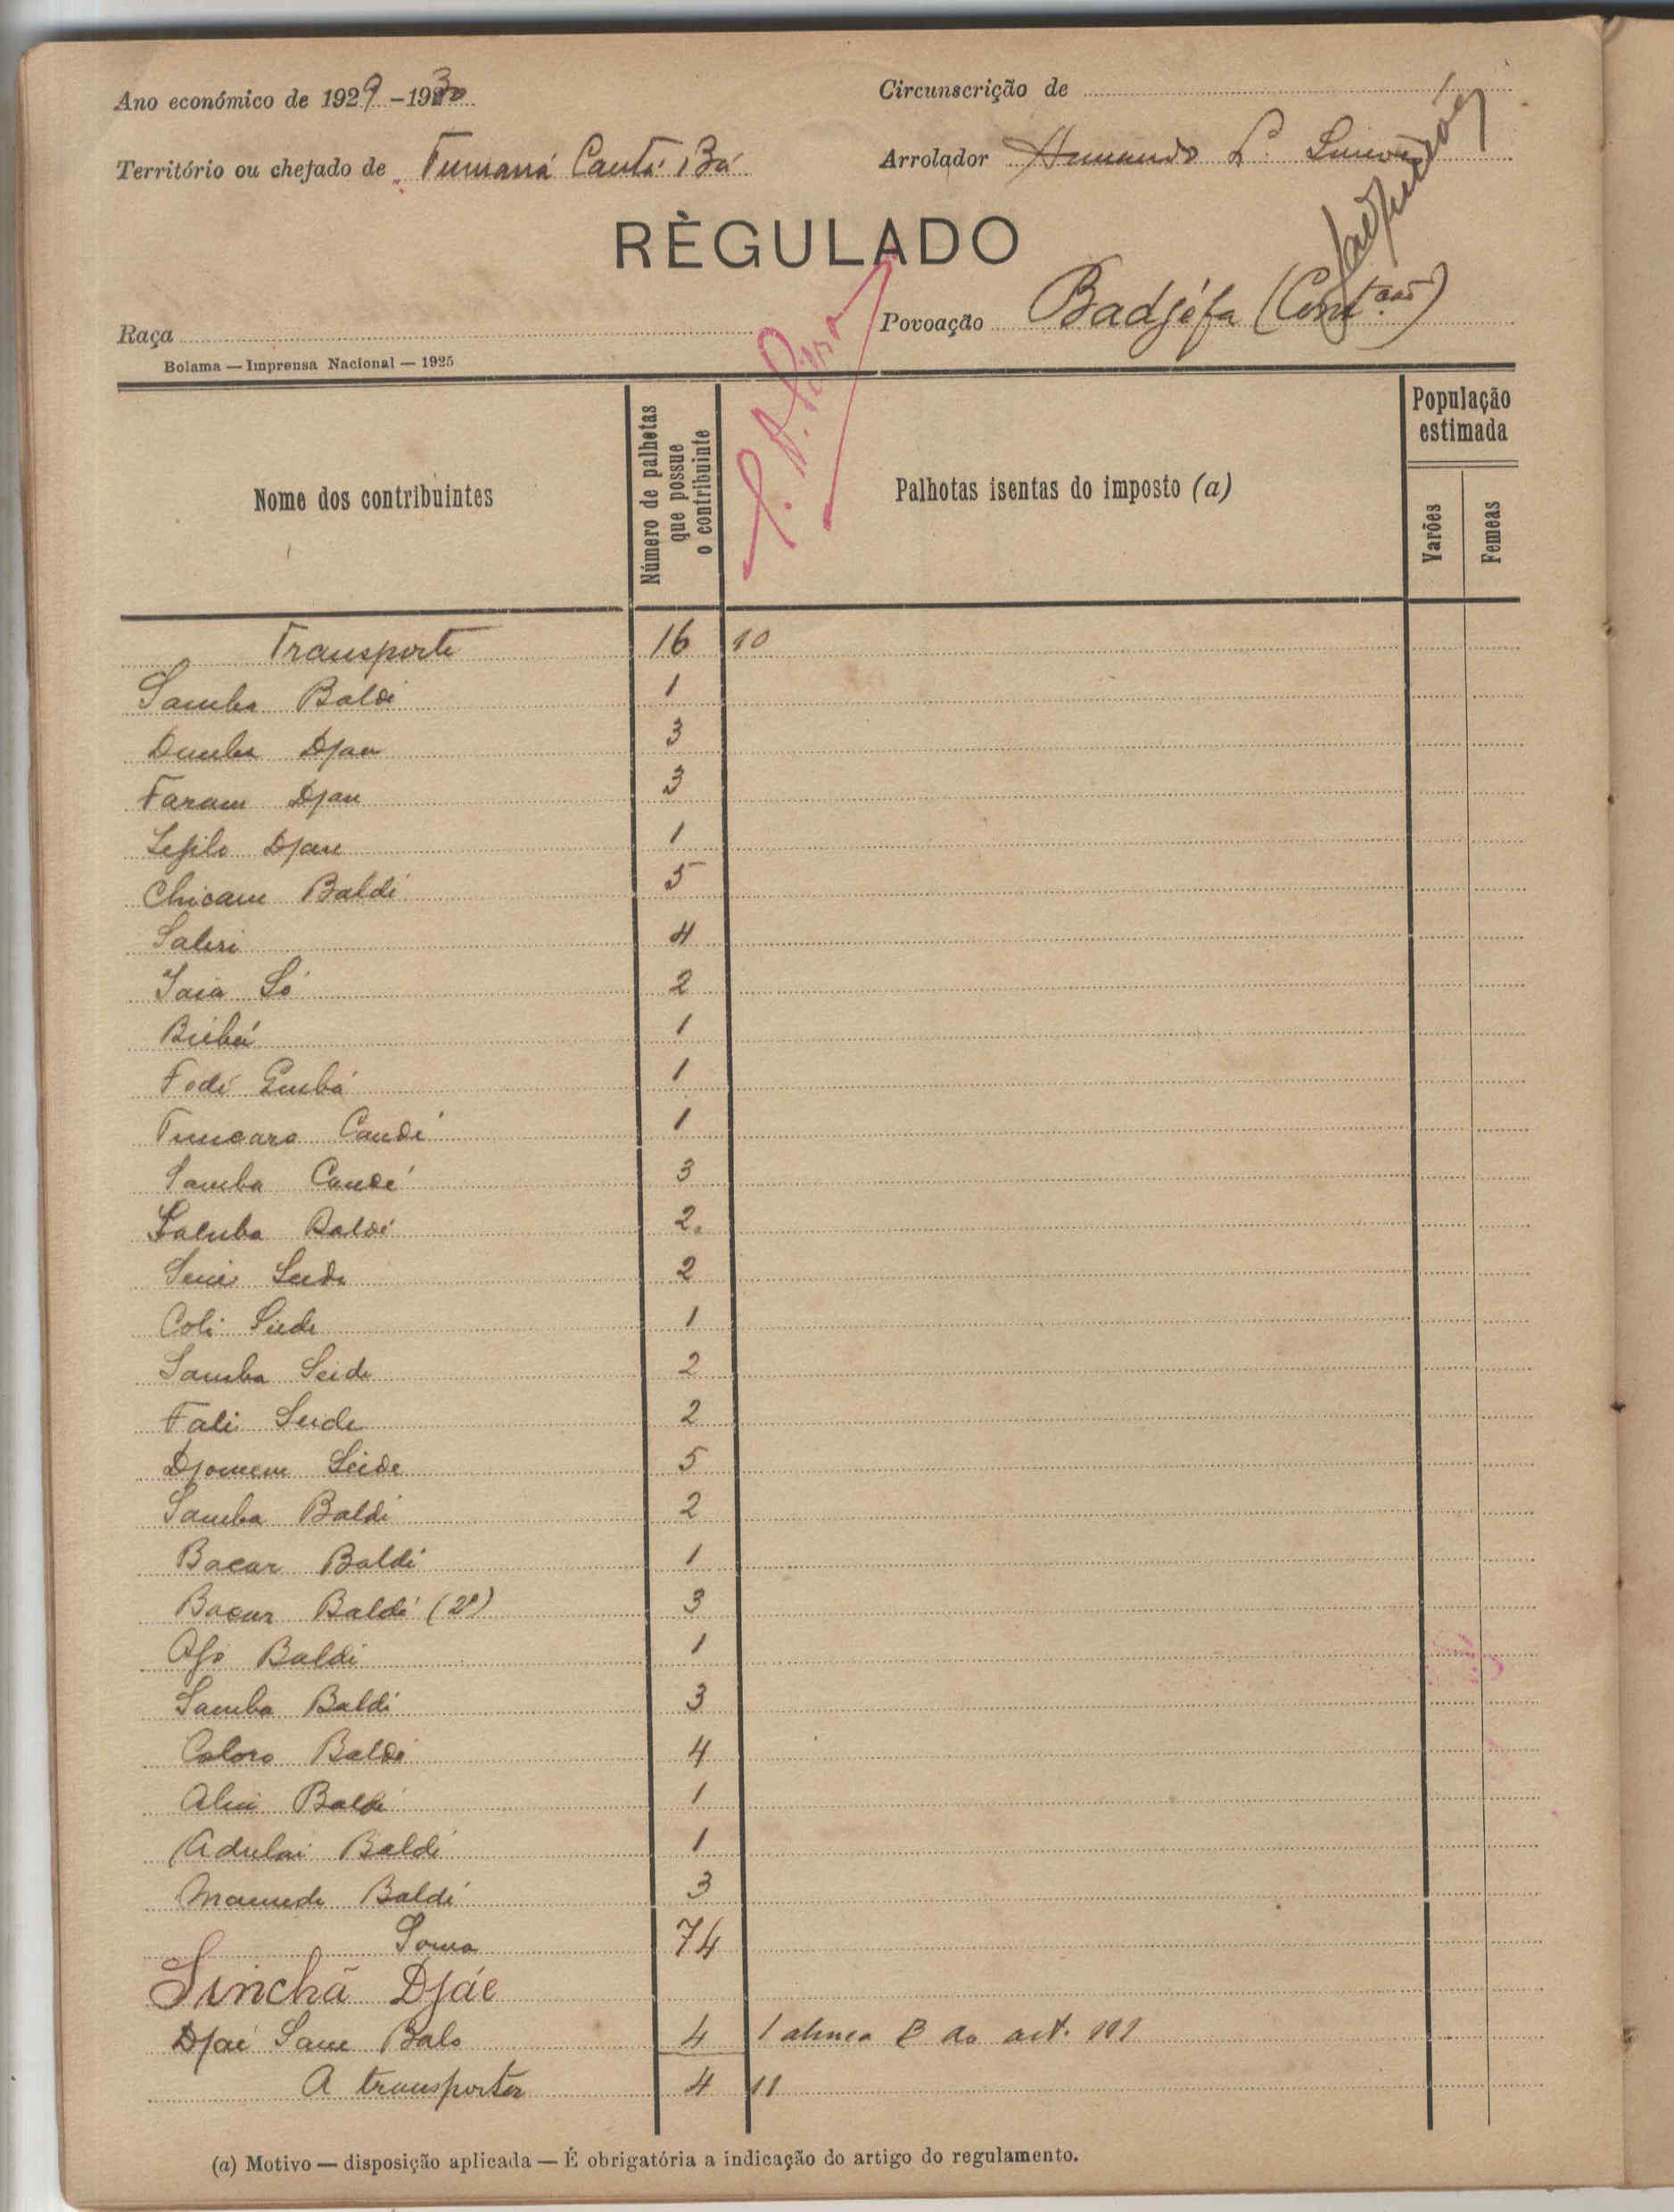 Ano económico de 1929-1930
Circunscrição de
Território ou chefado de Tumaná Cantá Bá
Arrolador Armando L.
RÈGULADO
Raça
Povoação Badjófa (Cont.ção)
Bolama — Imprensa Nacional — 1925
Nome dos contribuintes
Número de palhotas que possue o contribuinte
Palhotas isentas do imposto (a)
População estimada
Varões
Femeas
Transporte 16 10
Samba Baldé 1
Dumba Djau 3
Faram Djau 3
Djau 1
Chicam Baldé 5
Saliri 4
Iaia Só 2
1
Fodé Embá 1
Tumcara Candé 1
Samba Candé 3
Saluba Baldé 2
Seide 2
Coli Seide 1
Samba Seide 2
Fali Seide 2
Djomem Seide 5
Samba Baldé 2
Bacar Baldé 1
Bacar Baldé (2º) 3
Baldé 1
Samba Baldé 3
Coloro Baldé 4
Baldé 1
Adulai Baldé 1
Mamude Baldé 3
Soma 74
Sinchã Djáe
Djaé Sam Balo 4 1 alinea B do art. 101
A transportar 4 11
(a) Motivo — disposição aplicada — É obrigatória a indicação do artigo do regulamento.